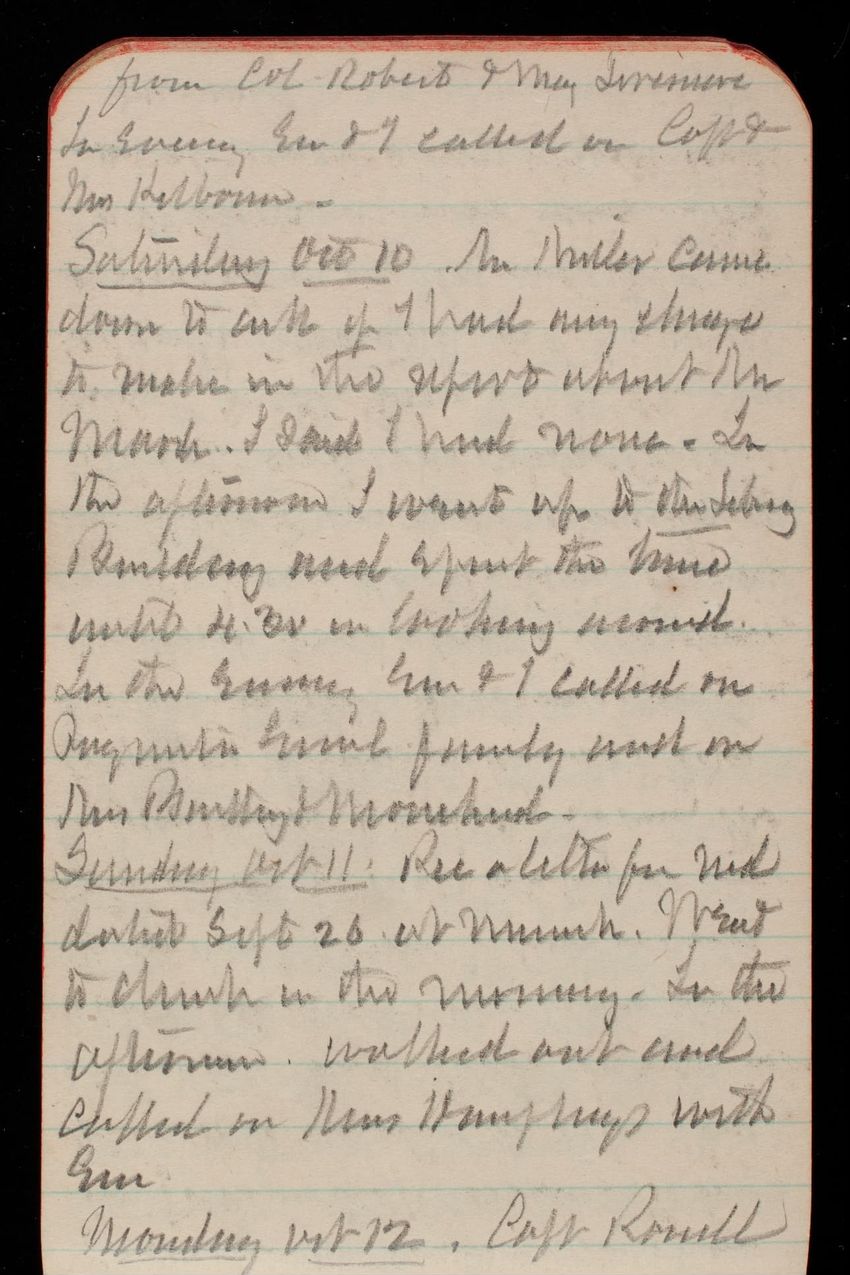 from Col Robert & Maj Livermore
In Evening Em & I called on Capt &
Mrs Kilbourn.
Saturday Oct 10. Mr Miller came
down to ask if I had any changes
to make in the report about the
March. I said I had none. In
the afternoon I went up to the Library
Building and spent the time
until 4.30 in looking around.
In the Evening Em & I called on
family and on
Mrs & Morehead.
Sunday Oct 11. Rec a letter from Ned
dated Sept 26 at Munich. Went
to church in the morning. In the
afternoon. walked out and
called on Mrs Humphreys with
Em
Monday Oct 12. Capt Rowell